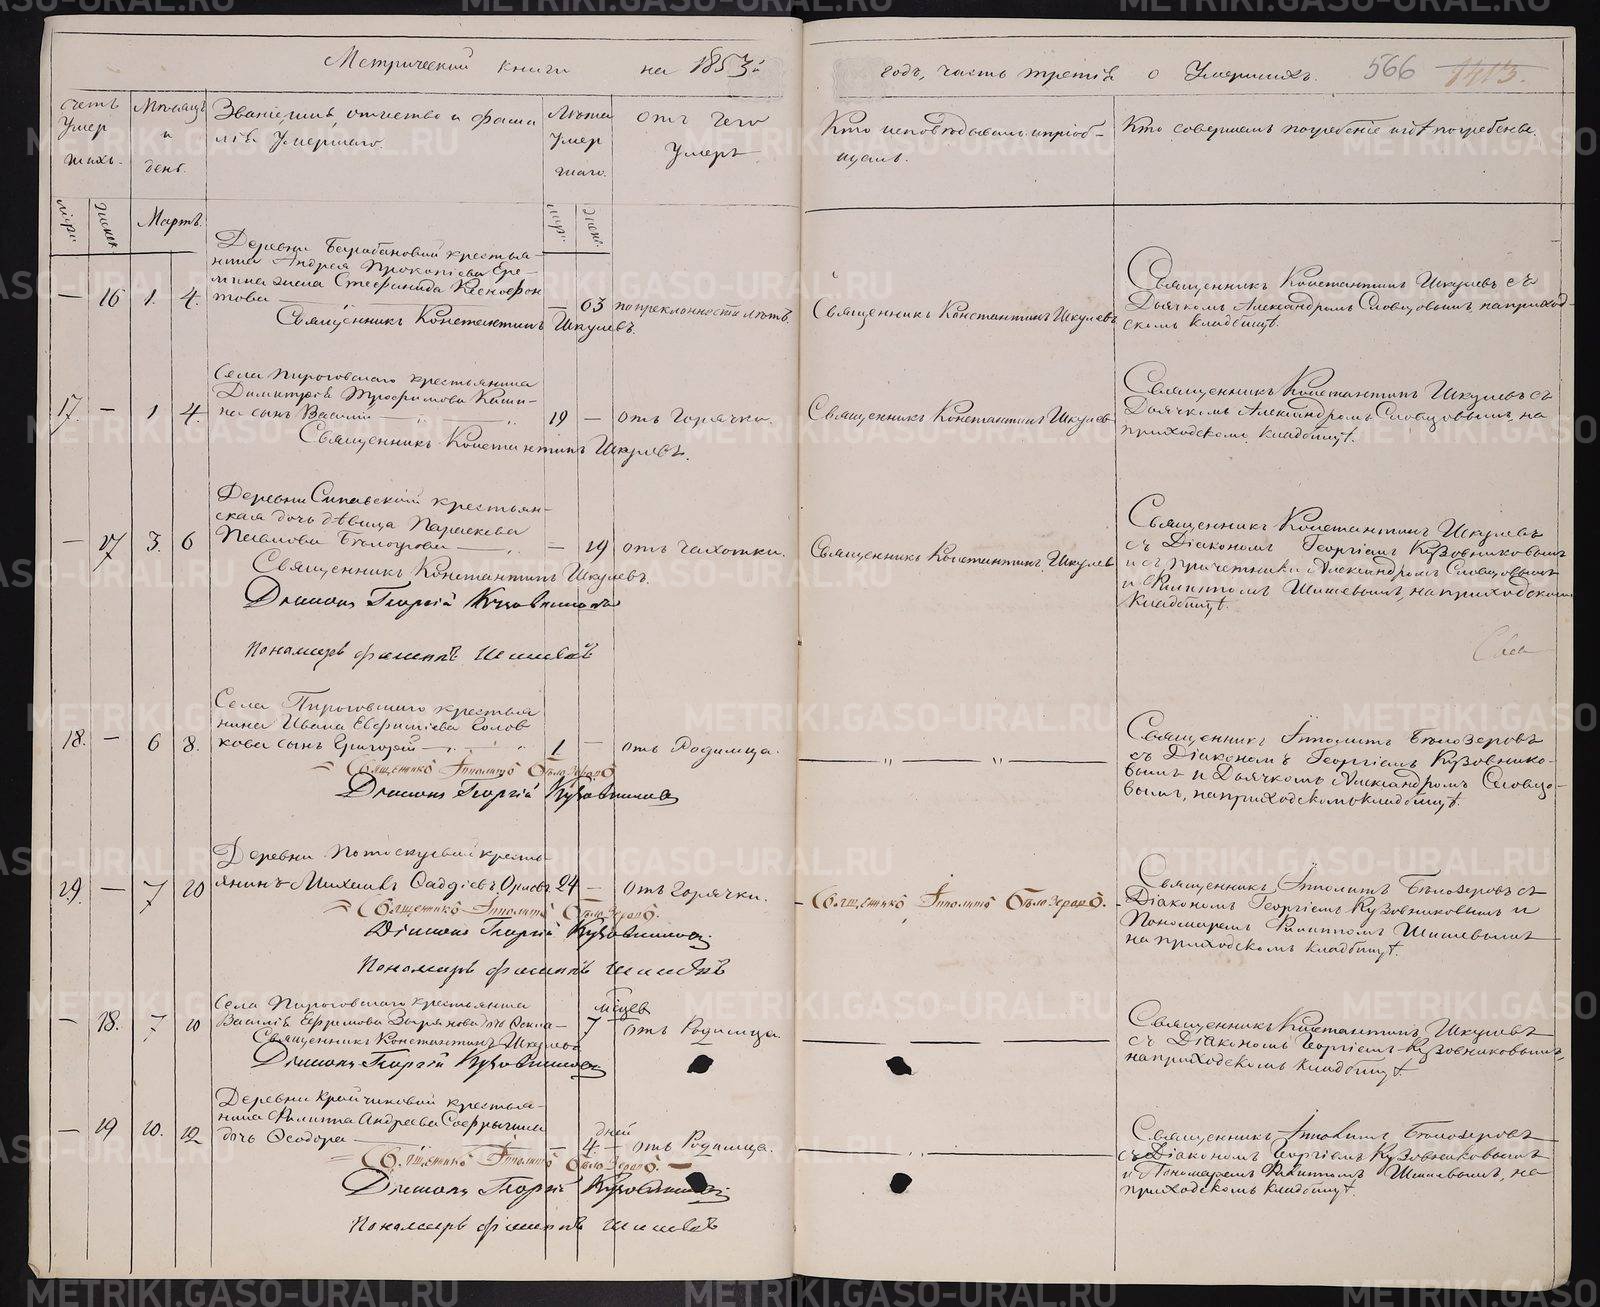 Метрической книги на 1853й
годъ, часть третія о Умершихъ. 566 1413.
счетъ Умершихъ.
Мѣсяцъ и день.
Званіе, имя, отчество и фамилія Умершаго.
Лѣта Умершаго.
отъ чего Умеръ
Кто исповѣдывалъ и пріобщалъ.
Кто совершалъ погребеніе и гдѣ погребены.
Мартъ.
Деревни Барабановой крестья-
нина Андрея Прокопіева Ере-
мина жена Стефанида Ксенофон
това
— 16 1. 4. — 63 по преклонности лѣтъ.
Священникъ Константинъ Шкулевъ.
Священникъ Константинъ Шкулевъ
Священникъ Константинъ Шкулевъ съ
Дьячкомъ Александромъ Словцовымъ на приход-
скомъ кладбищѣ.
Села Пироговскаго крестьянина
Димитрія Трофимова Каши-
на сынъ Василій
17. — 1 4. 19 — отъ Горячки.
Священникъ Константинъ Шкулевъ.
Священникъ Константинъ Шкулевъ
Священникъ Константинъ Шкулевъ съ
Дьячкомъ Александромъ Словцовымъ, на
приходскомъ кладбищѣ.
Деревни Сипавской крестьян-
ская дочь дѣвица Параскева
Павлова Бѣлоусова
— 17 3. 6 — 19 отъ чахотки.
Священникъ Константинъ Шкулевъ.
Діаконъ Георгій Кузовниковъ
Пономарь Филиппъ Шишевъ
Священникъ Константинъ Шкулевъ
Священникъ Константинъ Шкулевъ
съ Діакономъ Георгіемъ Кузовниковымъ
и съ причетники Александромъ Словцовымъ
и Филиппомъ Шишевымъ, на приходскомъ
кладбищѣ.
Села Пироговскаго крестья
нина Ивана Евфиміева Голов
кова сынъ Григорій
18. — 6 8. 1 — отъ Родимца.
Священникъ Ипполитъ Бѣлозеровъ
Діаконъ Георгій Кузовниковъ
Священникъ Ипполитъ Бѣлозеровъ
съ Діакономъ Георгіемъ Кузовнико-
вымъ и Дьячкомъ Александромъ Словцо-
вымъ, на приходскомъ кладбищѣ.
Деревни Потаскуевой кресть
янинъ Михаилъ Фаддѣевъ Орловъ. 24 — отъ Горячки.
19. — 7 10
Священникъ Ипполитъ Бѣлозеровъ.
Діаконъ Георгій Кузовниковъ.
Пономарь Филиппъ Шишевъ
Священникъ Ипполитъ Бѣлозеровъ.
Священникъ Ипполитъ Бѣлозеровъ съ
Діакономъ Георгіемъ Кузовниковымъ и
Пономаремъ Филиппомъ Шишевымъ
на приходскомъ кладбищѣ.
Села Пироговскаго крестьянина
Василія Ефримова Зырянова дочь Фекла
мѣсяцев
— 18. 7 10 7 отъ Родимца.
Священникъ Константинъ Шкулевъ
Діаконъ Георгій Кузовниковъ
Священникъ Константинъ Шкулевъ
съ Діакономъ Георгіемъ Кузовниковымъ,
на приходскомъ кладбищѣ.
Деревни Крайчиковой крестья-
нина Филиппа Андреева
дочь Феодора
дней
— 19 10. 12 — 4 — отъ Родимца.
Священникъ Ипполитъ Бѣлозеровъ.
Діаконъ Георгій Кузовниковъ
Пономарь Филиппъ Шишевъ
Священникъ Ипполитъ Бѣлозеровъ
съ Діакономъ Георгіемъ Кузовниковымъ
и Пономаремъ Филиппомъ Шишевымъ, на
приходскомъ кладбищѣ.
METRIKI.GASO-URAL.RU